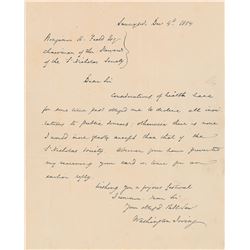 Sunnyside, Dec 4th 1854
Benjamin H. Field Esq
chairman of the Dinner
of the St. Nicholas Society
Dear Sir
Considerations of health have
for some time past obliged me to decline all invi
tations to public dinners otherwise there is none
I would more gladly accept than that of the
St. Nicholas Society. Absence from home prevented
my receiving your card in time for an
earlier reply.
Wishing you a joyous festival
I remain dear Sir
Your obliged
Washington Irving